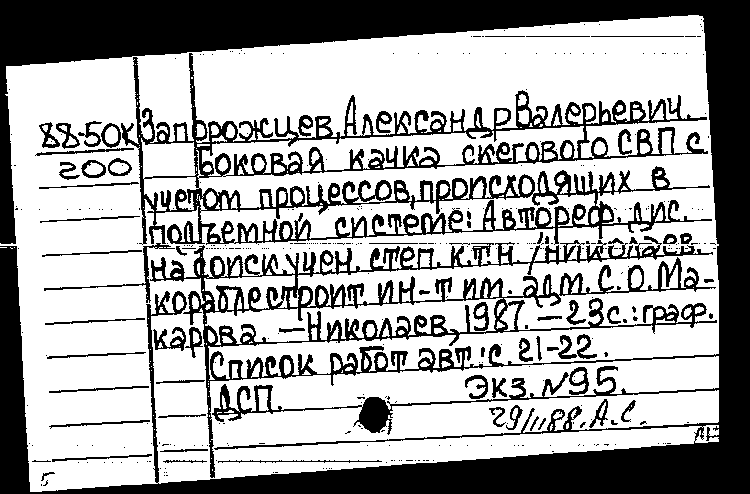 88-50к Запорожцев, Александр Валерьевич.
200 Боковая качка скегового СВП с
учетом процессов, происходящих в
подъемной системе: Автореф. дис.
на соиск. учен. степ. к.т.н. /Николаев.
кораблестроит. ин-т им. адм. С.О.Ма-
карова. — Николаев, 1987. — 23с.: граф.
Список работ авт.: с. 21-22.
ДСП. Экз. №95.
29/II 88. А.С.
5